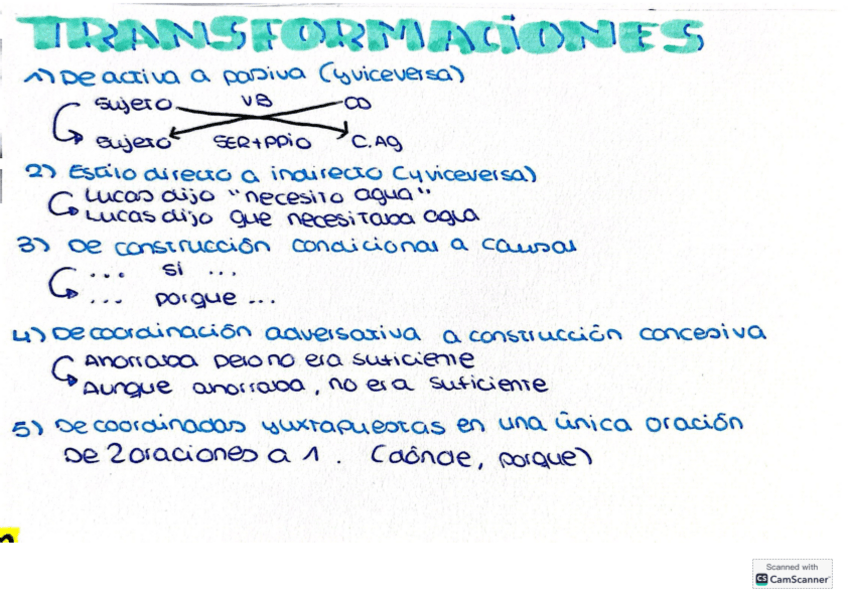 TRANSFORMACIONES
1) De activa a pasiva (y viceversa)
Sujeto VB CD
Sujeto SER+PPIO C.Ag
2) Estilo directo a indirecto (y viceversa)
Lucas dijo "necesito agua"
Lucas dijo que necesitaba agua
3) De construcción condicional a causal
... si ...
... porque ...
4) De coordinación adversativa a construcción concesiva
Ahorraba pero no era suficiente
Aunque ahorraba, no era suficiente
5) De coordinadas yuxtapuestas en una única oración
De 2 oraciones a 1. (dónde, porque)
Scanned with
CS CamScanner